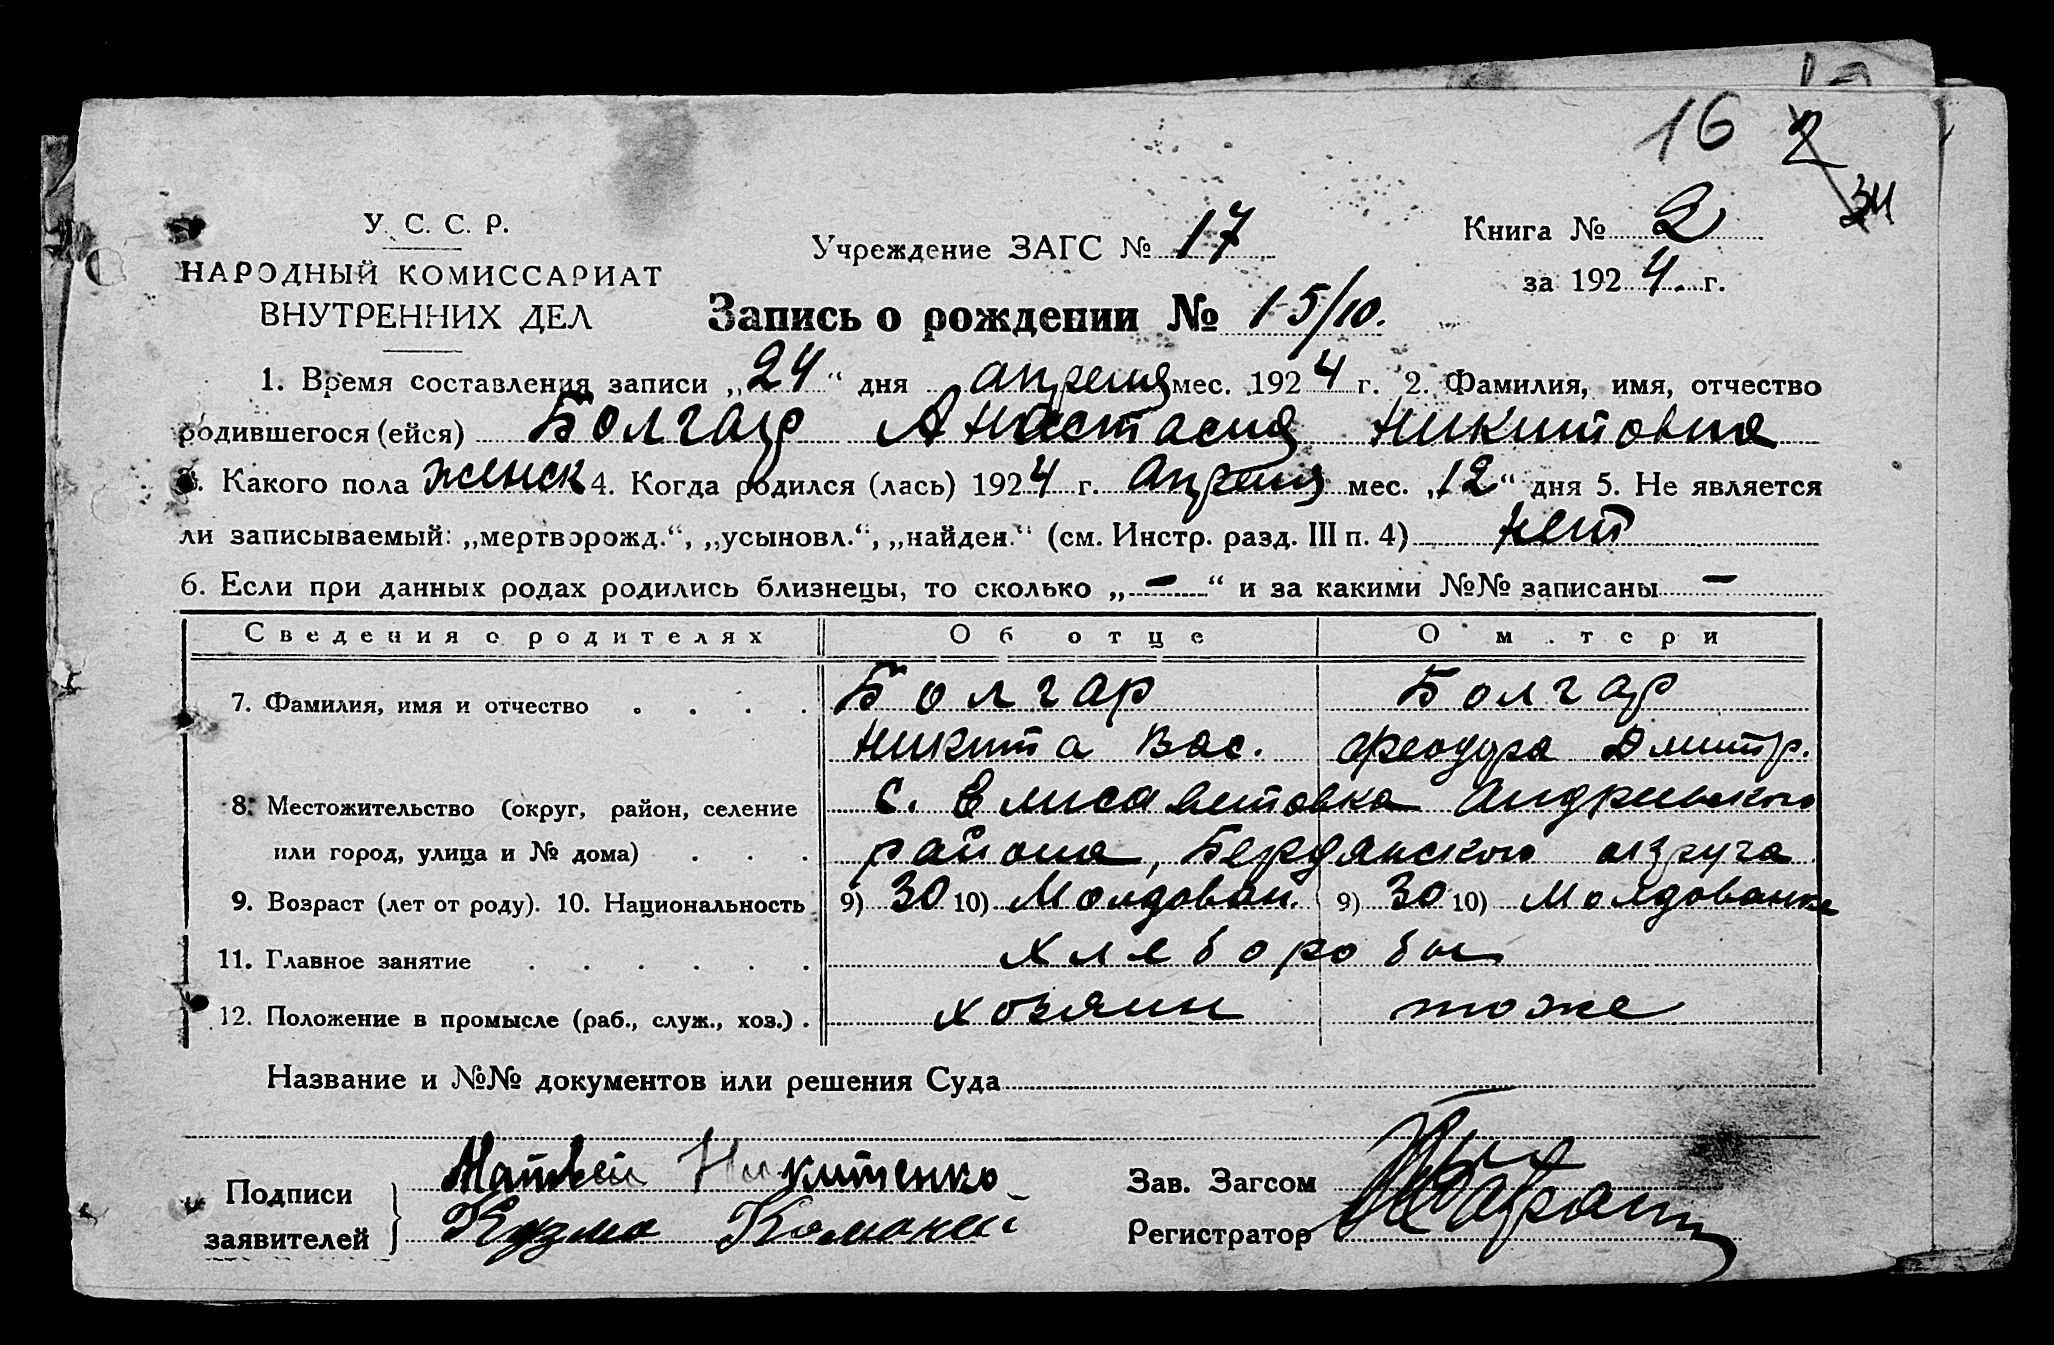 16 2
34
У. С. С. Р.
НАРОДНЫЙ КОМИССАРИАТ
ВНУТРЕННИХ ДЕЛ
Учреждение ЗАГС № 17
Книга № 2
за 1924. г.
Запись о рождении № 15/10.
1. Время составления записи „24“ дня апреля мес. 1924 г. 2. Фамилия, имя, отчество
родившегося (ейся) Болгар Анастасия Никитовна
3. Какого пола женск 4. Когда родился (лась) 1924 г. апреля мес. „12“ дня 5. Не является
ли записываемый: „мертворожд.“, „усыновл.“, „найден.“ (см. Инстр. разд. III п. 4) нет
6. Если при данных родах родились близнецы, то сколько „—“ и за какими №№ записаны —
Сведения о родителях Об отце О м.тери
7. Фамилия, имя и отчество . . . . Болгар Болгар
Никита Вас. Феодора Дмитр.
8. Местожительство (округ, район, селение с. Елисаветовка Андреевского
или город, улица и № дома) . . . района, Бердянского округа
9. Возраст (лет от роду). 10. Национальность 9) 30 10) Молдован. 9) 30 10) Молдованка
11. Главное занятие . . . . . . хлеборобы
12. Положение в промысле (раб., служ., хоз.) . хозяин тоже
Название и №№ документов или решения Суда
Подписи
заявителей
Матвей Никитенко
Кузма
Зав. Загсом
Регистратор